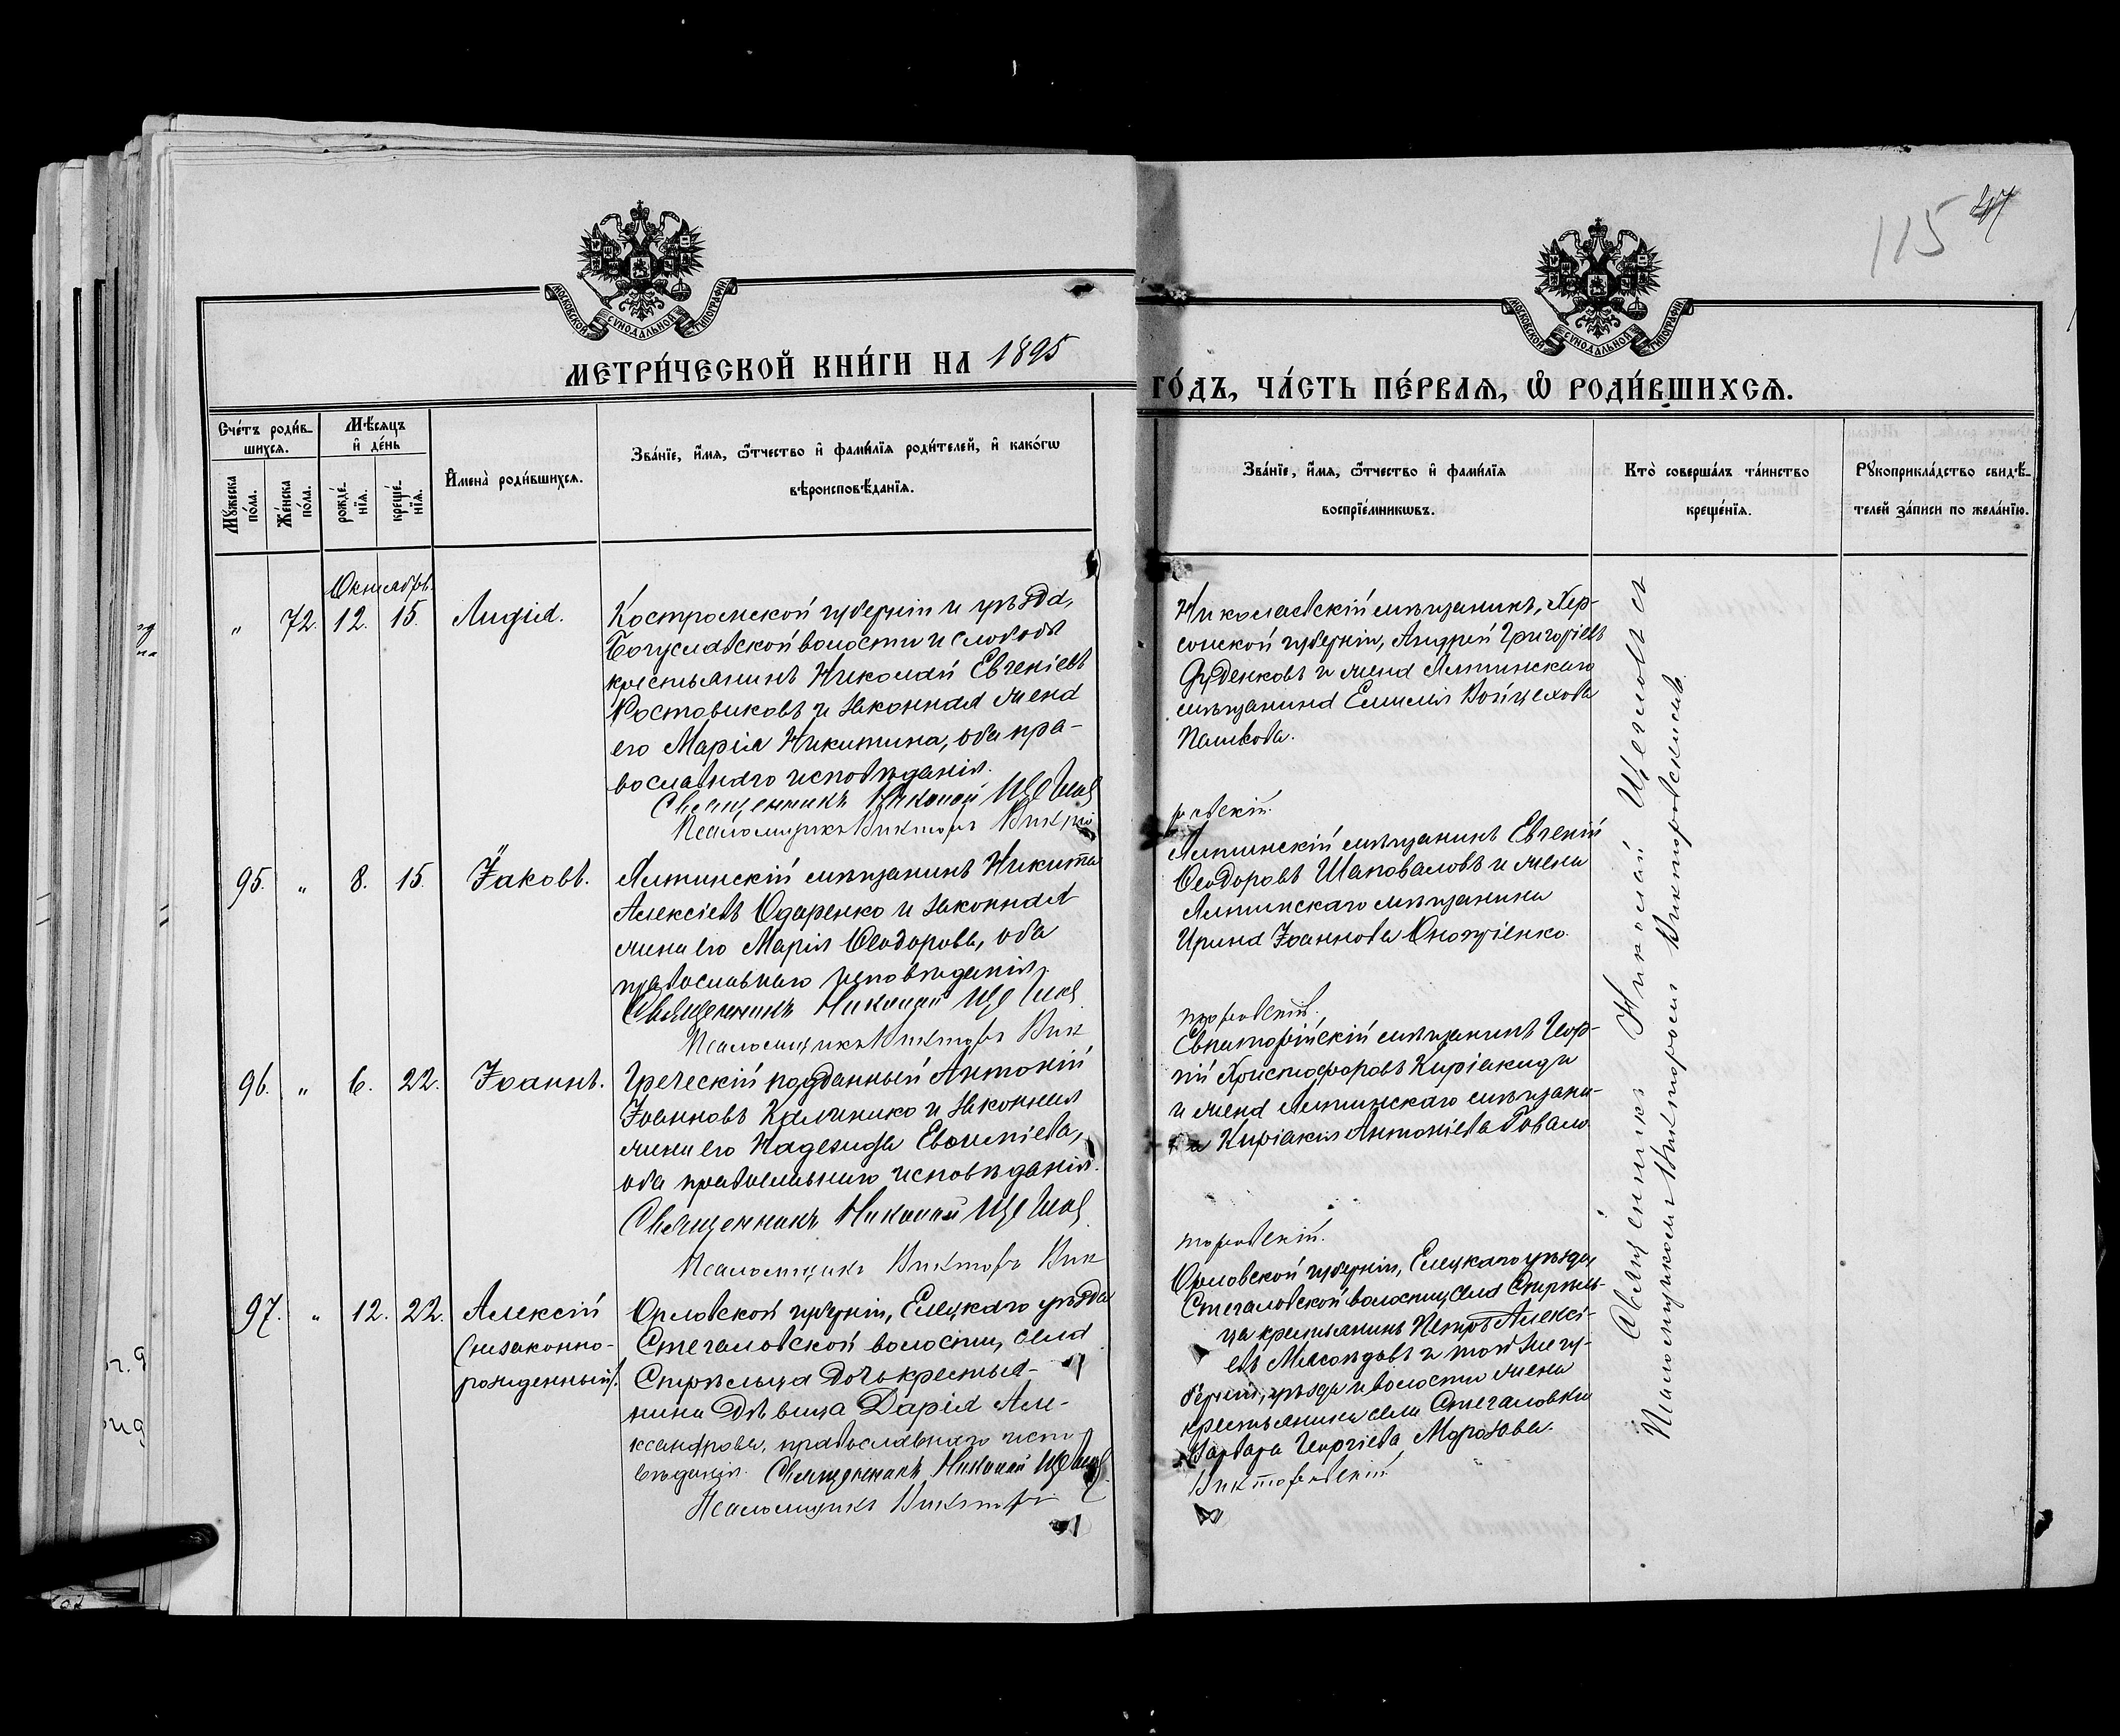 115 47
МОСКОВСКОЙ СѴНОДАЛЬНОЙ ТИПОГРАФІИ
МОСКОВСКОЙ СѴНОДАЛЬНОЙ ТИПОГРАФІИ
МЕТРИ́ЧЕСКОЙ КНИ́ГИ НА 1895
ГО́ДЪ, ЧА́СТЬ ПЕ́РВАЯ, Ѡ РОДИ́ВШИХСЯ.
Сче́тъ роди́в-
шихся.
Мꙋ́жеска по́ла.
Же́нска по́ла.
Мѣ́сяцъ
и҆ де́нь
рожде́-
нїя.
креще́-
нїя.
И҆мена̀ роди́вшихся.
Зва́нїе, и҆́мя, ѻ҆́тчество и҆ фами́лїя роди́телей, и҆ како́гѡ
вѣроисповѣ́данїя.
Зва́нїе, и҆́мя, ѻ҆́тчество и҆ фами́лїя
воспрїе́мникѡвъ.
Кто̀ соверша́лъ та́инство
креще́нїя.
Рꙋкоприкла́дство свидѣ́-
телей за́писи по жела́нїю.
Октябрь.
" 72. 12. 15. Лидія.
Костромской губерніи и уѣзда,
Богуславской волости и слободы
крестьянинъ Николай Евгеніевъ
Ростовиковъ и законная жена
его Марія Никитина, оба пра-
вославнаго исповѣданія.
Священникъ Николай Щегло
Псаломщикъ Викторъ Викто
Николаевскій мѣщанинъ, Хер-
сонской губерніи, Андрей Григоріевъ
Дуденковъ и жена Ялтинскаго
мѣщанина Емилія Войцехова
Пашкова.
ровскій.
95. " 8. 15. Іаковъ.
Ялтинскій мѣщанинъ Никита
Алексіевъ Одаренко и законная
жена его Марія Ѳеодорова, оба
православнаго исповѣданія.
Священникъ Николай Щегло
Псаломщикъ Викторъ Вик
Ялтинскій мѣщанинъ Евгеній
Ѳеодоровъ Шаповаловъ и жена
Ялтинскаго мѣщанина
Ирина Іоаннова Оногріенко.
торовскій.
96. " 6. 22. Іоаннъ.
Греческій подданный Антоній
Іоанновъ Калинико и законная
жена его Надежда Евѳиміева,
оба православнаго исповѣданія.
Священникъ Николай Щегло
Псаломщикъ Викторъ Вик
Евпаторійскій мѣщанинъ Геор-
гій Христофоровъ Киріакиди
и жена Ялтинскаго мѣщани-
на Киріакія Антоніева
торовскій.
97. " 12. 22. Алексій
(незаконно-
рожденный).
Орловской губерніи, Елецкаго уѣзда
Стегаловской волости, села
Стрѣльца дочь крестья-
нина дѣвица Дарія Але-
ксандрова, православнаго испо-
вѣданія. Священникъ Николай Щегло
Псаломщикъ Викторъ
Орловской губерніи, Елецкаго уѣзда,
Стегаловской волости, села Стрѣль-
ца крестьянинъ Петръ Алексі-
евъ Мясоѣдовъ и той же гу-
берніи, уѣзда и волости жена
крестьянина села Стегаловки
Варвара Георгіева Морозова.
Викторовскій.
Священникъ Николай Щегловъ съ
Псаломщикомъ Викторомъ Викторовскимъ.